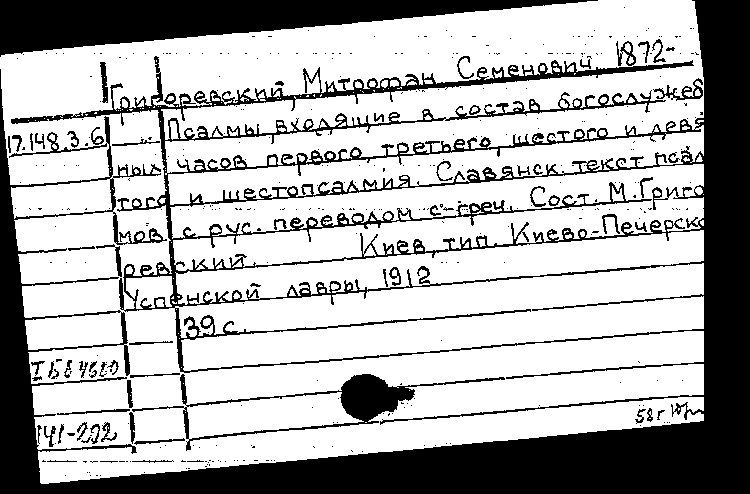 Григоревский, Митрофан Семенович, 1872-
17.148.3.6 Псалмы, входящие в состав богослужеб
ных часов первого, третьего, шестого и девя
того и шестопсалмия. Славянск. текст псал
мов с рус. переводом с греч. Сост. М. Григо
ревский. Киев, тип. Киево-Печерско
Успенской лавры, 1912
39 с.
141-202